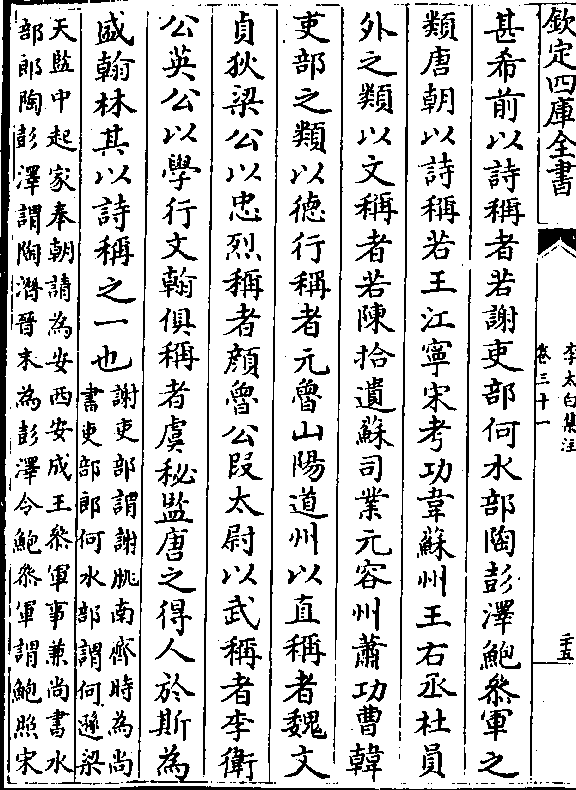 欽定四庫全書
李太白集注
卷三十一
二十五
甚希前以詩稱者若謝吏部何水部陶彭澤鮑叅軍之
類唐朝以詩稱若王江寧宋考功韋蘇州王右丞杜員
外之類以文稱者若陳拾遺蘇司業元容州蕭功曹韓
吏部之類以德行稱者元魯山陽道州以直稱者魏文
貞狄梁公以忠烈稱者顔魯公段太尉以武稱者李衛
公英公以學行文翰俱稱者虞秘監唐之得人於斯為
盛翰林其以詩稱之一也
謝吏部謂謝朓南齊時為尚
書吏部郎何水部謂何遜梁
天監中起家奉朝請為安西安成王叅軍事兼尚書水
部郎陶彭澤謂陶潛晉末為彭澤令鮑叅軍謂鮑照宋